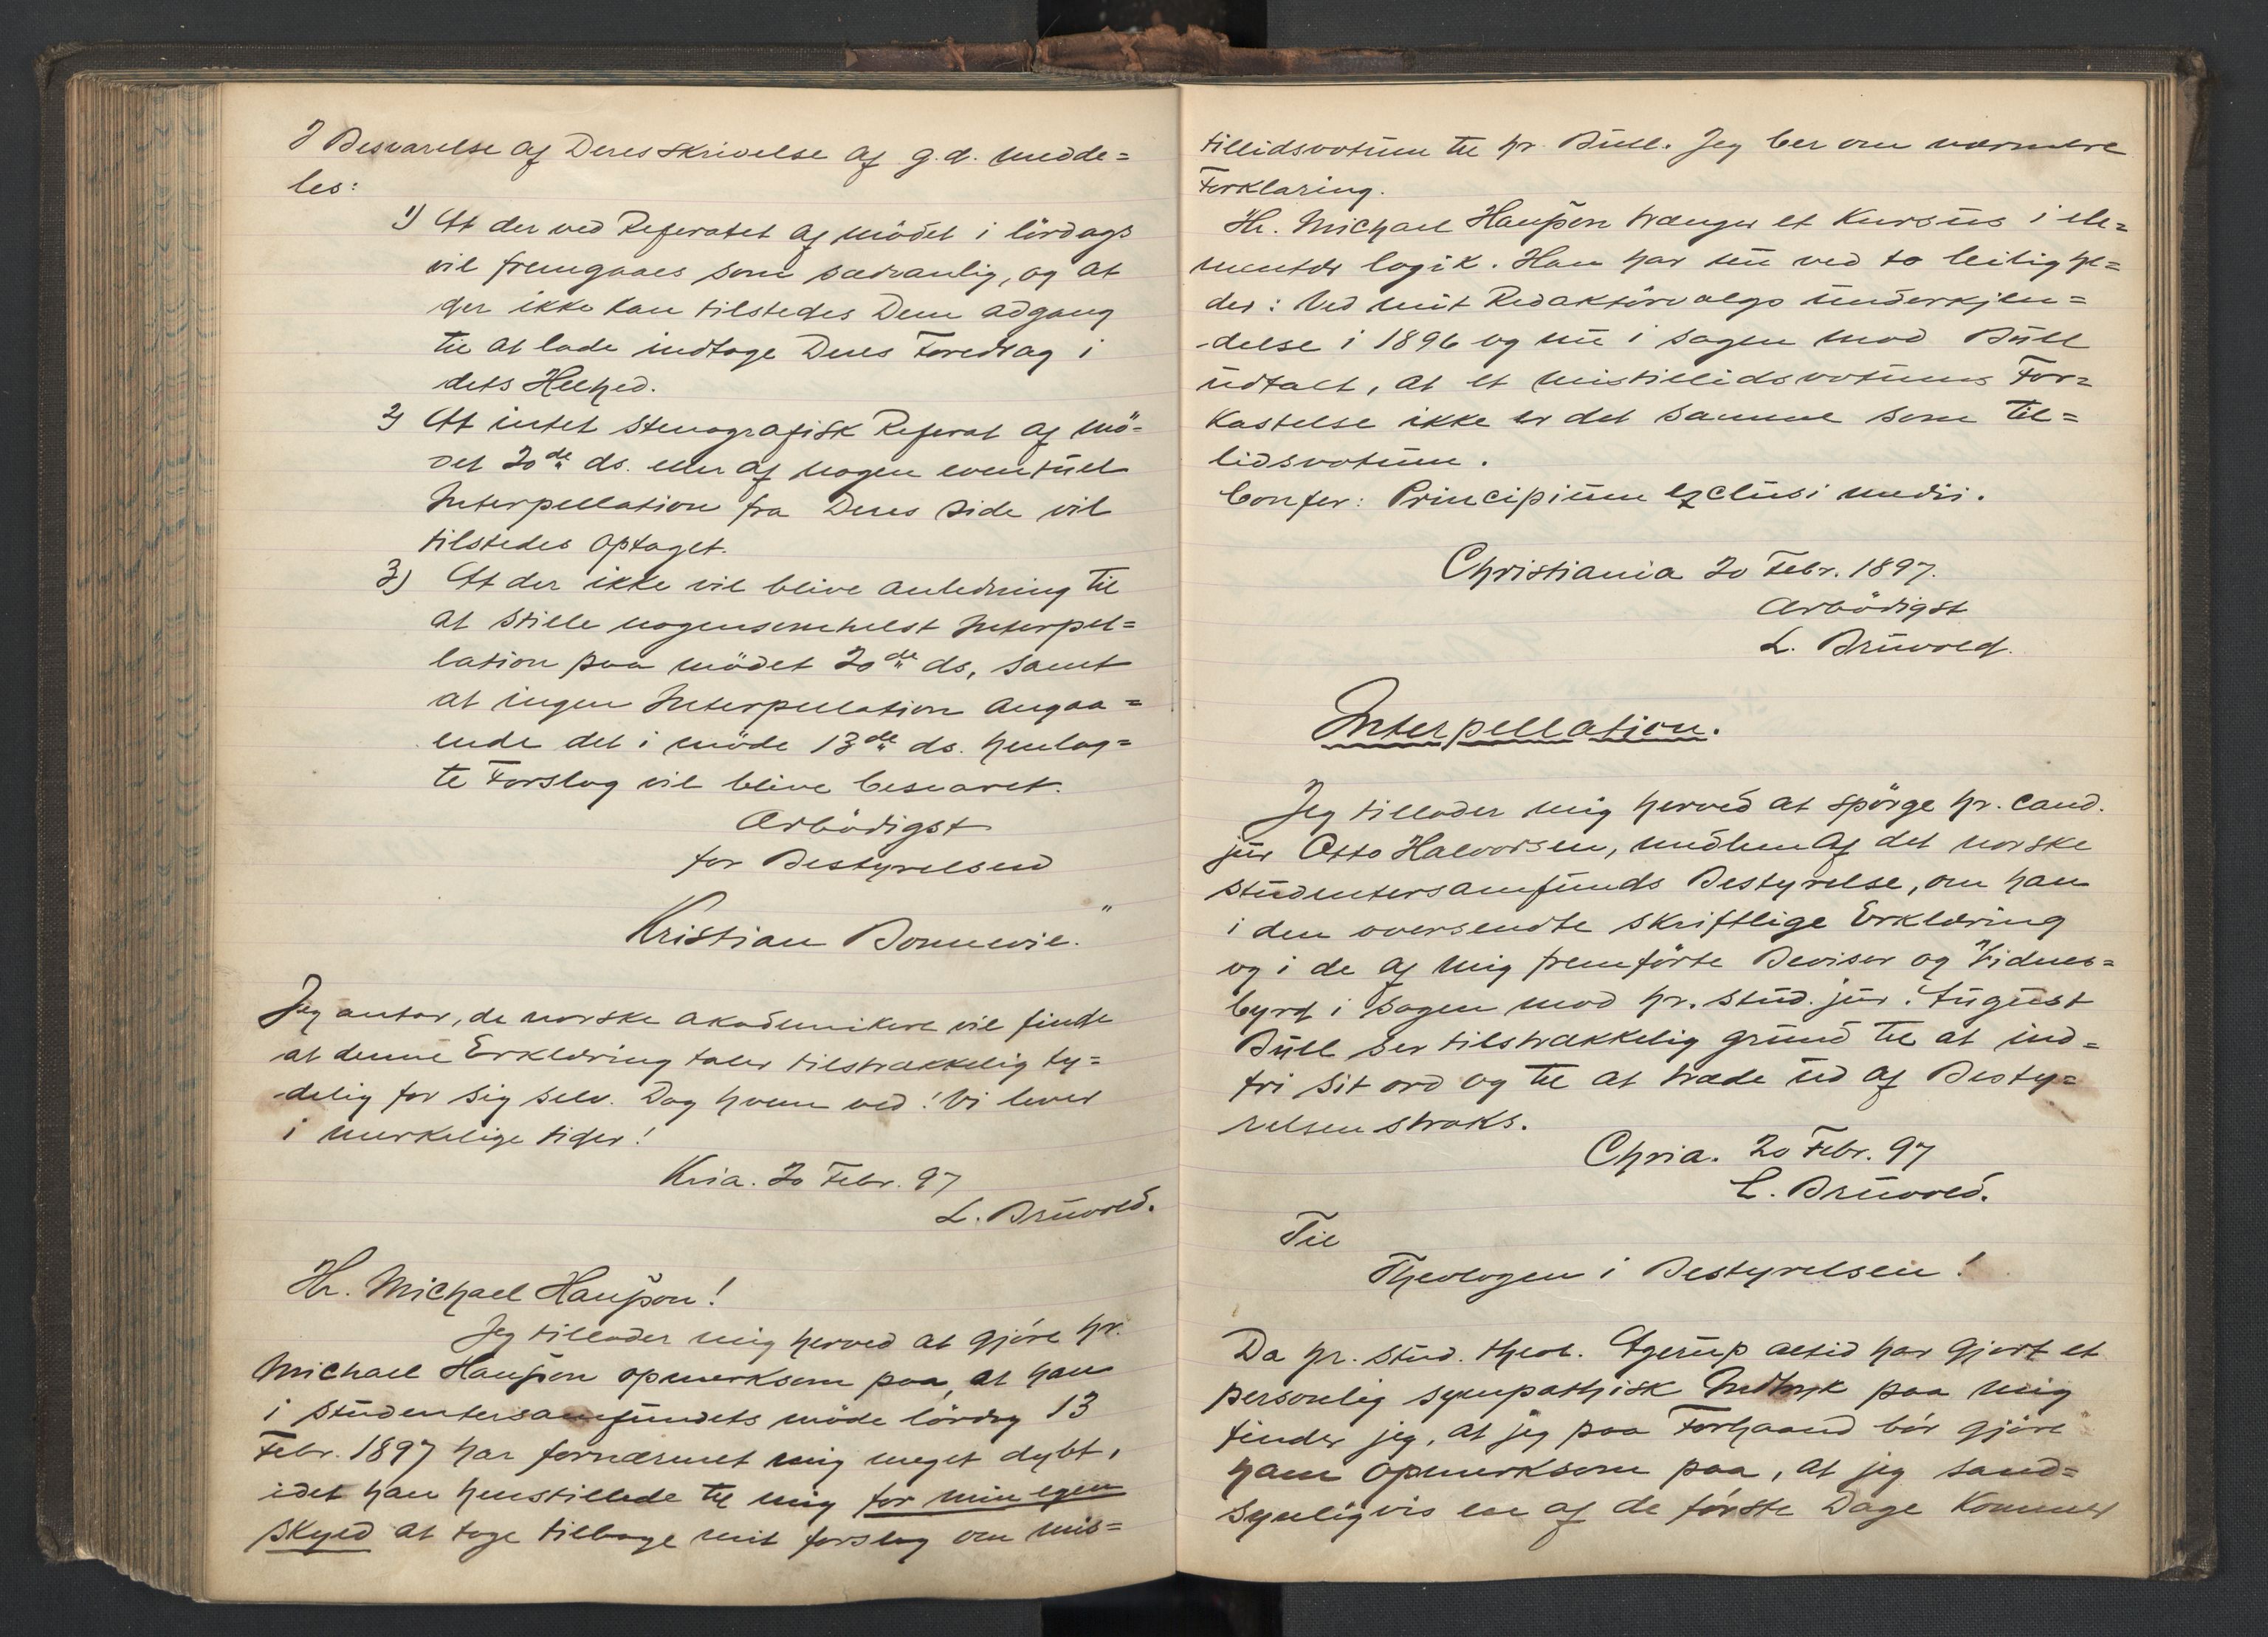 I Besvarelse af Deres Skrivelse af g. d. medde=
les:
1) At der ved Referatet af mödet i lördags
vil fremgaaes som sædvanlig, og at
der ikke kan tilstedes Dem adgang
til at lade indtage Deres Foredrag i
dets Helhed.
2) At intet stenografisk Referat af mö=
det 20de ds. eller af nogen eventüel
Interpellation fra Deres Side vil
tilstedes optaget.
3) At der ikke vil blive anledning til
at stille nogensomhelst Interpel=
lation paa mödet 20de ds, samt
at ingen Interpellation angaa=
ende det i möde 13de ds. henlag=
te Forslag vil blive besvaret.
Ærbödigst
for Bestyrelsen
Kristian Bonnevie."
Jeg antar, de norske akademikere vil finde
at denne Erklæring taler tilstrækkelig ty=
delig for sig selv. Dog hvem ved! Vi lever
i merkelige tider!
Kria. 20 Febr. 97
L. Brüvold.
Hr. Michael Hansson!
Jeg tillader mig herved at gjöre hr.
Michael Hansson opmerksom paa, at han
i Stüdentersamfündets möde lördag 13
Febr. 1897 har fornærmet mig meget dybt,
idet han henstillede til mig for min egen
Skyld at tage tilbage mit forslag om mis=
tillidsvotüm til hr. Büll. Jeg ber om nærmere
Forklaring.
Hr. Michael Hansson trænger et Kursüs i ele=
mentær logik. Han har nü ved to leilighe=
der: Ved mit Redaktörvalgs ünderkjen=
delse i 1896 og nü i sagen mod Büll
üdtalt, at et mistillidsvotüms For=
kastelse ikke er det samme som Til=
lidsvotüm.
Confer: Principiüm exclüsi medii.
Christiania 20 Febr. 1897.
Ærbödigst
L. Brüvold.
Interpellation.
Jeg tillader mig herved at spörge hr. cand.
jür Otto Halvorsen, medlem af det norske
Stüdentersamfünds Bestyrelse, om han
i den oversendte skriftlige Erklæring
og i de af mig fremförte Beviser og Vidnes=
byrd i Sagen mod hr. stüd. jür. Aügüst
Büll ser tilstrækkelig gründ til at ind=
fri sit ord og til at træde üd af Besty=
relsen straks.
Chria. 20 Febr. 97
L. Brüvold.
Til
Theologen i Bestyrelsen!
Da hr. stüd. theol. Agerüp altid har gjort et
personlig sympathisk Indtryk paa mig
finder jeg, at jeg paa Forhaand bör gjöre
ham opmerksom paa, at jeg sand=
synligvis en af de förste Dage kommer